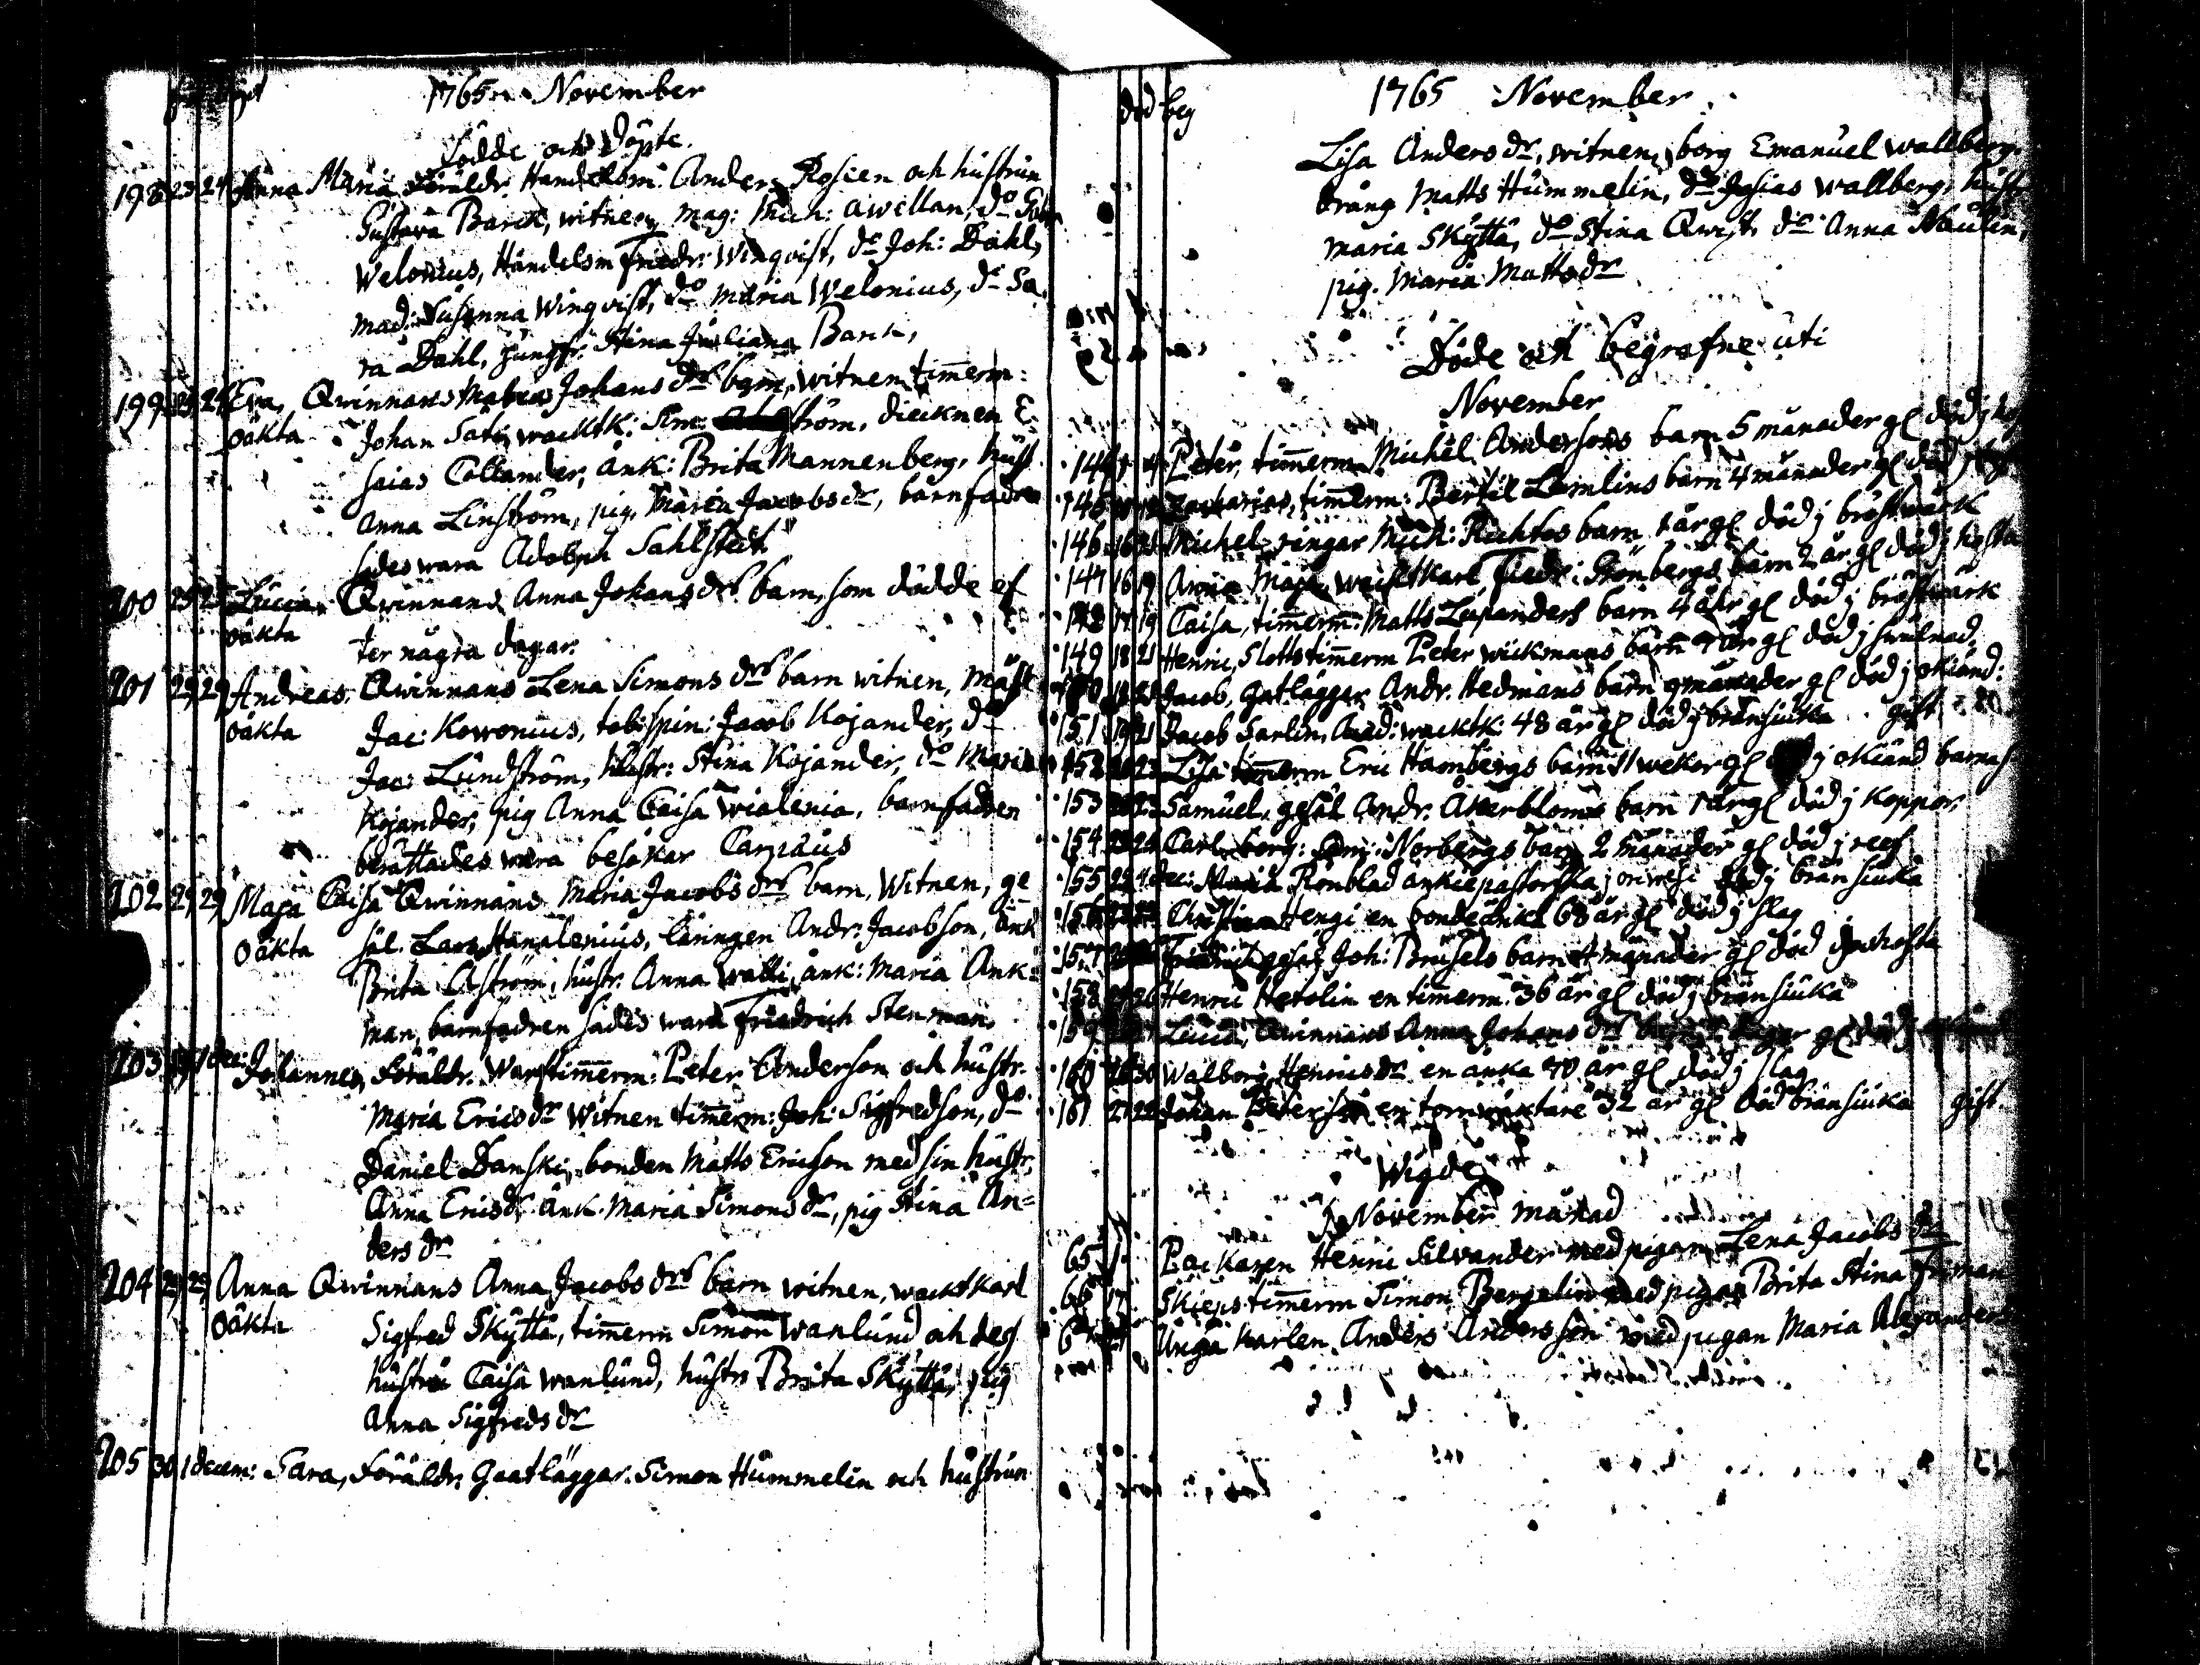 1765 November
Födde och Döpte.
198 23 24 Anna Maria Föräldr. Handelsm: Anders Rosien och hustrun
Gustava Barck, witnen, mag: Mich: Awellan, do
Welonius, Handelsm Friedr: Winqvist, do Joh: Dahl,
mad: Susanna Wingvist, do Maria Welonius, do Sa
ra Dahl, jungfr. Stina Juliana Barck,
199 24 Eva, Qwinnans Johans drs barn, witnen timerm:
oäkta Johan wacktk: ström, diecknen E
saias Collander, änk: Brita Mannenberg, hust
Anna Linström, pig. Maria Jacobsdr, barnfadren
sades wara Adolph Sahlstedt
200 25 Lucia Qwinnans Anna Johans drs barn, som dödde ef
oäkta ter några dagar.
201 29 29 Andreas. Qwinnans Lena Simons drs barn witnen, Mäst
oäkta Jac: Kowonius, tob:spin: Jacob Kojander, do
Jac: Lundström, hustr: Stina Kojander, do Maria
Kojander, pig Anna Caisa Wialenia, barnfadren
berättades wara besökar Campäus
202 29 29 Maja Caisa Qwinnans Maria Jacobs drs barn, Witnen, ge
oäkta säl. Lars Hanalenius, läringen Andr: Jacobson, änk
Brita Åström, hustr. Anna Walli, änk: Maria Ank=
man, barnfadren sades wara Friedrich Stenman.
203 1 dec: Johannes, Föräldr. Warfstimerm: Peter Anderson och hustr.
Maria Erics dr Witnen timerm: Joh: Sigfredson, do
Daniel Danski, bonden Matts Ericson med sin hustr,
Anna Ericsdr. änk. Maria Simons dr, pig Stina An=
ders dr
204 29 29 Anna Qwinnans Anna Jacobs drs barn witnen, wacktkarl
oäkta Sigfred Skyttä, timerm Simon Wanlund och des
hustru Caisa Wanlund, hustr Brita Skyttä, pig
Anna Sigfreds dr
205 30 1 decem: Sara, Föräldr. Gaatläggar. Simon Hummelin och hustrun
död beg
1765 November
Lisa Anders dr, witnen, borg Emanuel Wallberg,
dräng Matts Hummelin, do Josias Wallberg, hustr
Maria Skyttä, do Stina Qwist, do Anna Naulin,
pig. Maria Matts dr
Döde och begrafne uti
November
144 Peter, timerm Michel Andersons barn 5 månader gl död j
145 Zacharias, timerm: Bertil Lemlins barn 4 månader gl död j
146 16 21 Michel, ringar Mich: barn 1 år gl död j bröstwärk
147 16 19 Anna Maja wacktkarl Friedr: Grönbergs barn 2 år gl död j hosta
148 17 19 Caisa, timerm: Matts Lupanders barn 4 åhr gl död j bröstwärk
149 18 21 Henric, Slottstimerm Peter Wickmans barn år gl död j swulnad.
150 Jacob, Gatläggar Andr. Hedmans barn månader gl död j okiänd:
151 19 21 Jacob Sarlin, Acad: wacktk: 48 år gl död j bränsiuka gift
152 Lisa timerm Eric Hambergs barn 11 wekor gl j okiänd barns
153 Samuel, gesäl Andr. Åkerbloms barn 1 år gl död j koppor,
154 Carl, borg: Norbergs barn 2 månader gl död j reef
155 dec: Maria Rönblad änkiepastorska j oriwesi död j bränsiuka
156 Christina Hengi en bondeänka 68 år gl död j slag
157 Friedrich, gesäl Joh: Brusels barn månader gl död hosta
158 26 Henric Hetolin en timerm. 36 år gl död j bränsiuka
159 Lucia, Qwinnans Anna Johans drs gl död j
160 30 Walborg Henricsdr en änka 70 år gl död j slag
161 Johan Peterson en tornwäktare 32 år gl död bränsiuka gift.
Wigde
j November månad
65 Backaren Henric Silvander med pigan Lena Jacobs dr
66 17 Skieps timerm Simon Bergelin med pigan Brita Stina
67 Unga karlen Anders Andersson med pigan Maria Alexanders